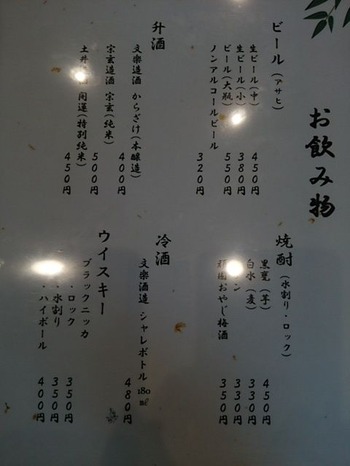 お飲み物
ビール(アサヒ)
生ビール(中) 450円
生ビール(小) 380円
ビール(大瓶) 550円
ノンアルコールビール 320円
升酒
文楽酒造 からざけ(本醸造) 400円
宗玄酒造 宗玄(純米) 500円
土井 開運(特別純米) 450円
焼酎(水割り・ロック)
黒甕(芋) 450円
白水(麦) 330円
ン 330円
頑固おやじ梅酒 350円
冷酒
文楽酒造 シャレボトル 180ml 480円
ウイスキー
ブラックニッカ
・ロック 350円
・水割り 350円
・ハイボール 400円